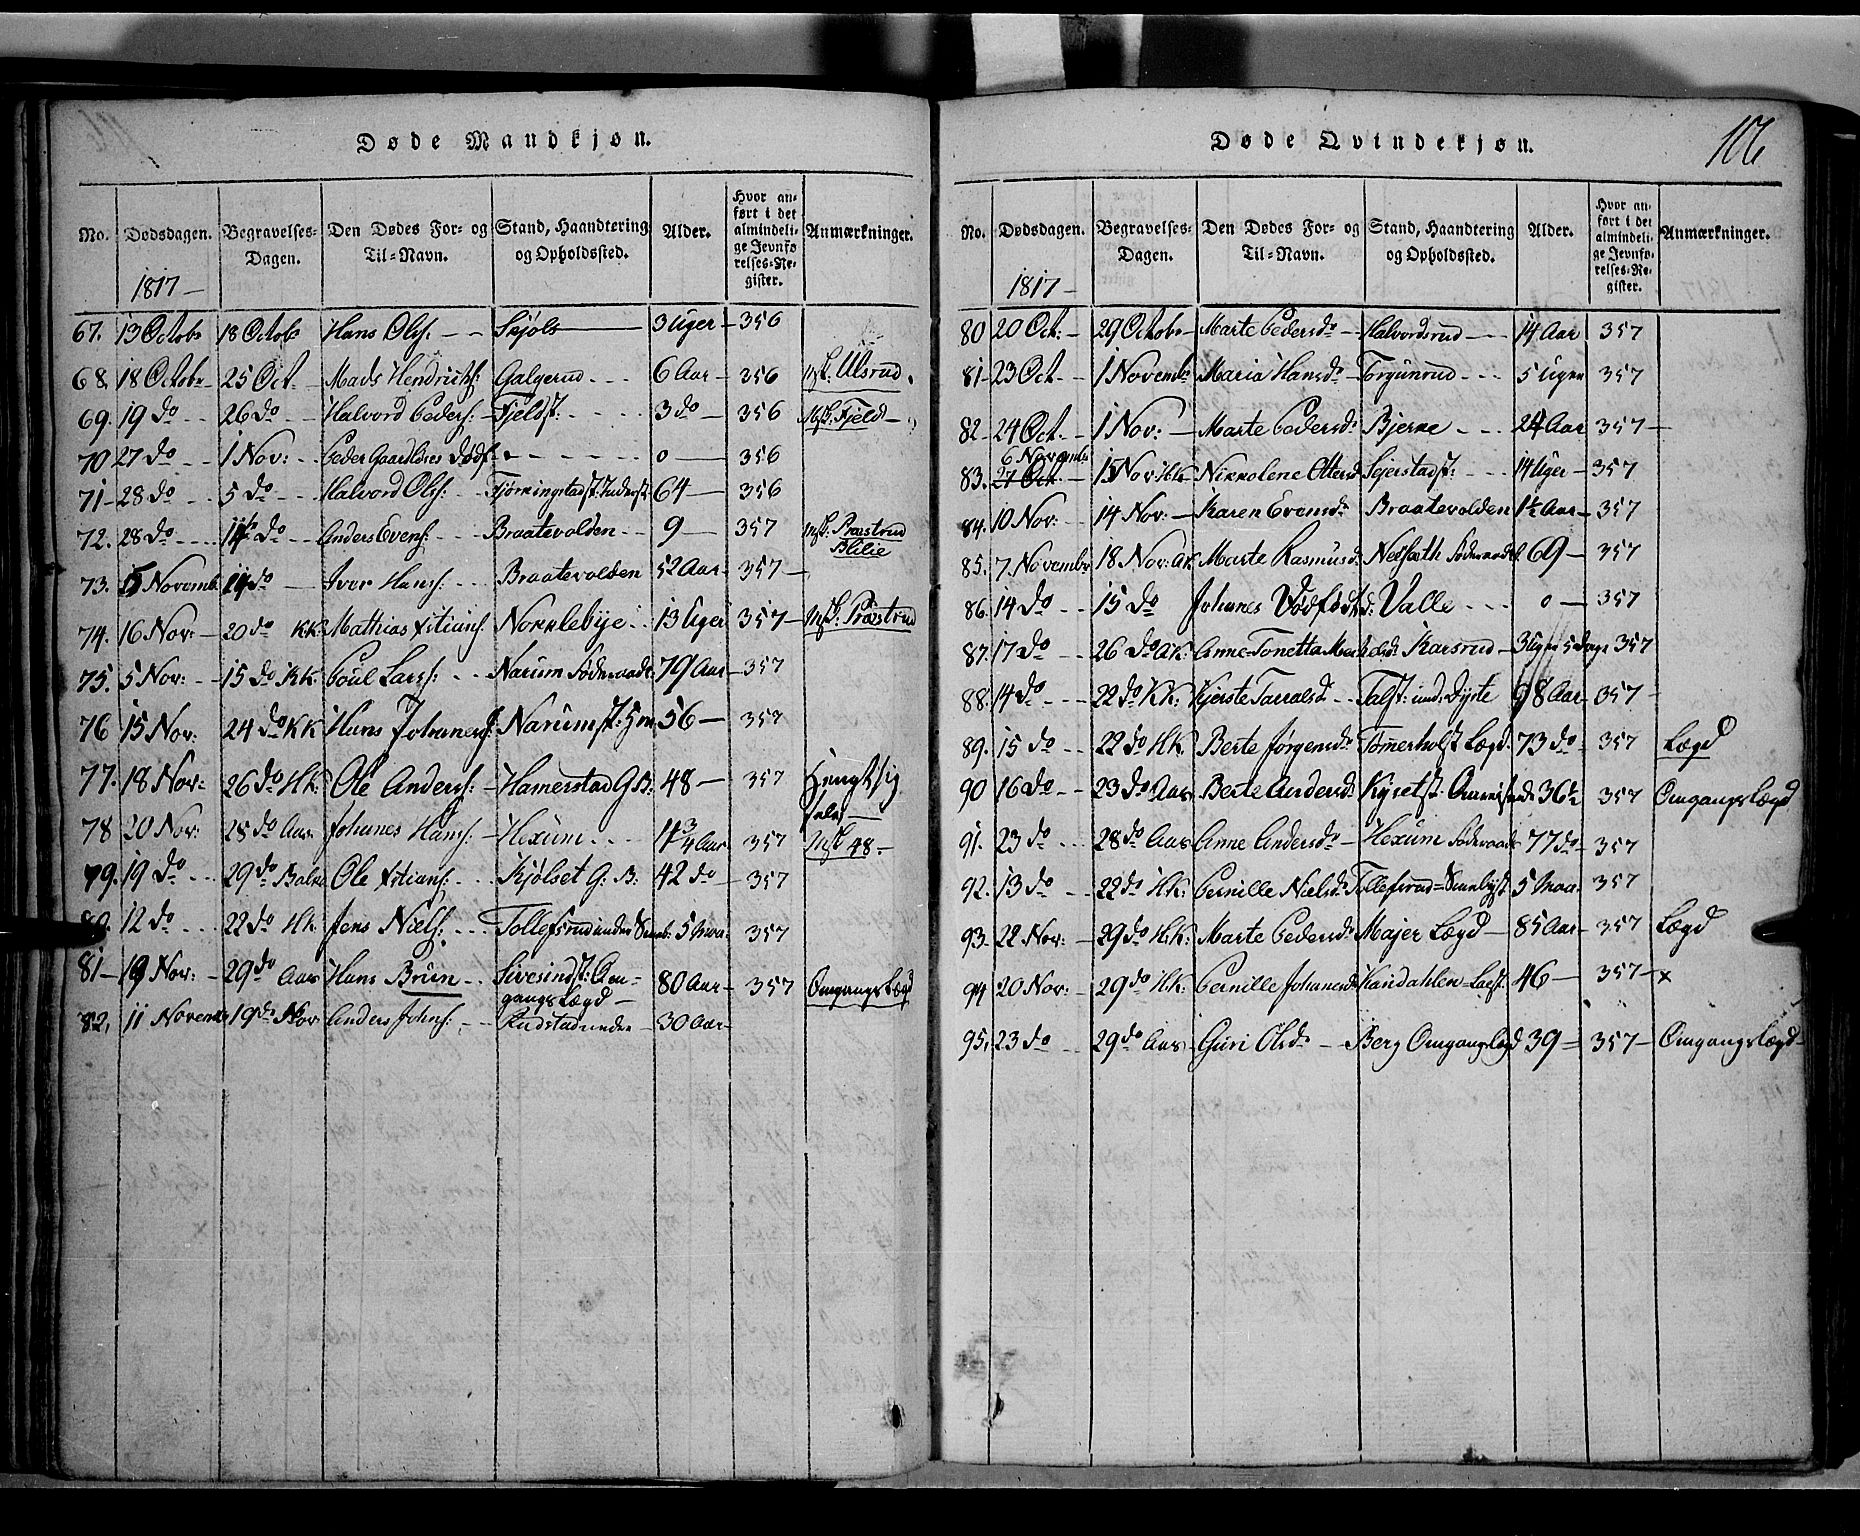 Døde Mandkjøn.
No. Dødsdagen. Begravelses-Dagen. Den Dødes For- og Til-Navn. Stand, Haandtering og Opholdssted. Alder. Hvor anført i det almindelige Jevnførelses-Register. Anmærkninger.
1817 –
67. 13 Octobr 18 Octobr Hans Olss: – – Skjols 3 Uger – 356
68. 18 Octobr 25 Oct. – Mads Hendrichs: Galgerud – – – 6 Aar – 356 Ulsrud
69. 19 do – – 26 do – – Halvord Peders: – Fjeldst: – – – 3 do – 356 Fjeld –
70 27 do – – 1 Nov: – Peder Gaardløses Dødf: – – – 0 – 356
71 – 28 do – – 5 do – – Halvord Olss: – – 64 – 356
72. 28 do – – – 14 do – – Anders Evens: – – Braatevolden – – 9 – 357 Præstrud Blilie
73. 5 Novemb. 14 do – Iver Hans: – – – Braatevolden 52 Aar – 357 –
74. 16 Nov: – 20 do KK: Mathias Xtians: Nokklebye – 13 Uger 357 – Præstrud
75. 5 Nov: – – 15 do KK. Poul Larss: – – Narum Søderaadt: 79 Aar – 357
76 15 Nov: 24 do KK Hans Johaness: Narumst: 56 – 357
77. 18 Nov: 26 do HK: Ole Anderss: – Hamerstad G. B: 48 – 357 Hengt sig selv –
78 20 Nov: 28 do Aas Johanes Hanss: – Hexum – – – 4 3/4 Aar 357 48 –
79. 19 do – – – 29 do Balke Ole Xtians: – – Kjølset G: B: 42 do – 357
80. 12 do – – – 22 do HK: Jens Niels: – – – Tollefsrud under 5 Maa: 357
81 – 19 Nov: – 29 do Aas Hans Brun – – Sivesindst: Omgangs Lægd – 80 Aar – 357 Omgangs Lægd
82, 11 Novemb 19 do Nov Anders Johns: – – Rudstad under – 30 Aar –
Døde Qvindekjøn.
106
No. Dødsdagen. Begravelses-Dagen. Den Dødes For- og Til-Navn. Stand, Haandtering og Opholdssted. Alder. Hvor anført i det almindelige Jevnførelses-Register. Anmærkninger.
1817 –
80 20 Oct: – 29 Octobr – Marte Pedersdr – Halvordsrud – – 14 Aar 357
81 – 23 Oct – – 1 Novembr Maria Hansdr Torgunrud – – – 5 Uger 357
82 – 24 Oct. – 1 Nov: – Marte Pedersdr Bjerne – – – 24 Aar 357 –
6 Novembr
83. 27 Oct. – 15 Nov: HK Nikkolene Ottersd Sejerstadst: – – – 14 Uger – 357
84. 10 Nov: – – 14 Nov: – Karen Evensdr Braatevolden 1½ Aar – 357
85. 7. Novembr 18 Nov: AK Marte Rasmusd: Nesset Søderaadt 69 – 357
86. 14 do – – 15 do Johanes Dødfødt d: Valle – – – 0 – 357
87. 17 do – – 26 do AK: Anne Tonetta Karsrud – 3 Uger 5 dage 357
88. 14 do – – 22 do KK: Kjerste Tarralsd – Falst: und: Dyste 98 Aar 357 –
89. 15 do – – – 22 do HK: Berte Jørgensdr Tømerholst Lægd. 73 do – 357 Lægd
90 16 do – – 23 do Aas Berte Andersdr Kysetst. 36½ 357 Omgangs Lægd
91. 23 do – – – 28 do Aas Anne Andersdr – Hexum Søderaadt 77 do – 357
92. 13 do – – 22 do HK: Pernille Nielsd: Tollefsrud = 5 Maa: 357
93. 22 Nov: – 29 do HK: Marte Pedersdr Majer Lægd – 85 Aar – 357 Lægd
94 20 Nov: – 29 do HK: Pernille Johanesd: Kandahlen = 46 – 357 – x
95. 23 do – – 29 do Aas Guri Olsdr – – Berg Omgangslægd 39 = 357 – Omgangs Lægd –